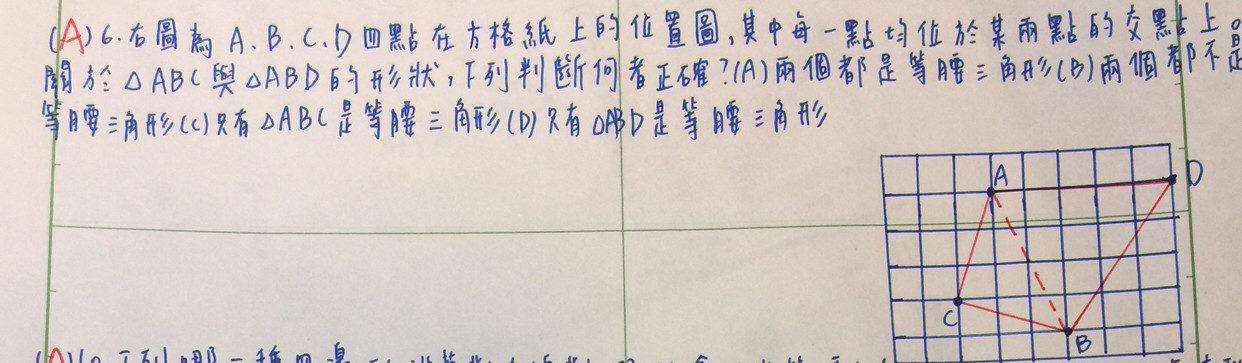 (A)6.右圖為A.B.C.D四點在方格紙上的位置圖,其中每一點均位於某兩點的交點上。
關於△ABC與△ABD的形狀,下列判斷何者正確?(A)兩個都是等腰三角形(B)兩個都不是
等腰三角形(C)只有△ABC是等腰三角形(D)只有△ABD是等腰三角形
A
D
C
B